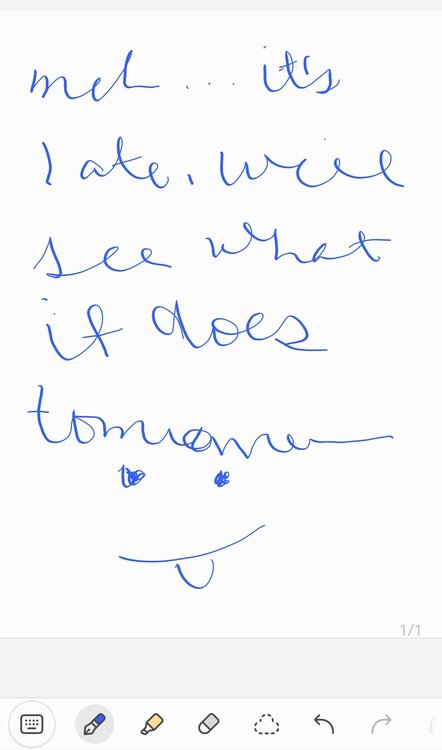 meh... it's
late. will
see what
it does
tomorrow
1/1